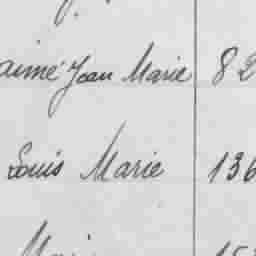 aimé Jean Marie 82
Louis Marie 136